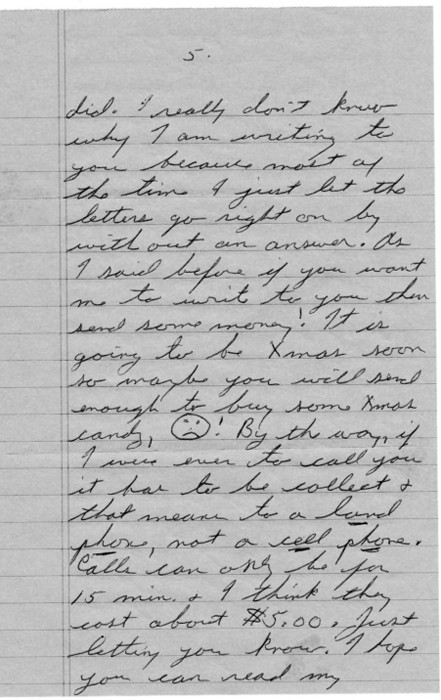 5.
did. I really don't know
why I am writing to
you because most of
the time I just let the
letters go right on by
with out an answer. As
I said before if you want
me to write to you then
send some money! It is
going to be Xmas soon
so maybe you will send
enough to buy some Xmas
candy, ☹! By the way, if
I were ever to call you
it has to be collect &
that means to a land
phone, not a cell phone.
Calls can only be for
15 min. & I think they
cost about $5.00. Just
letting you know. I hope
you can read my